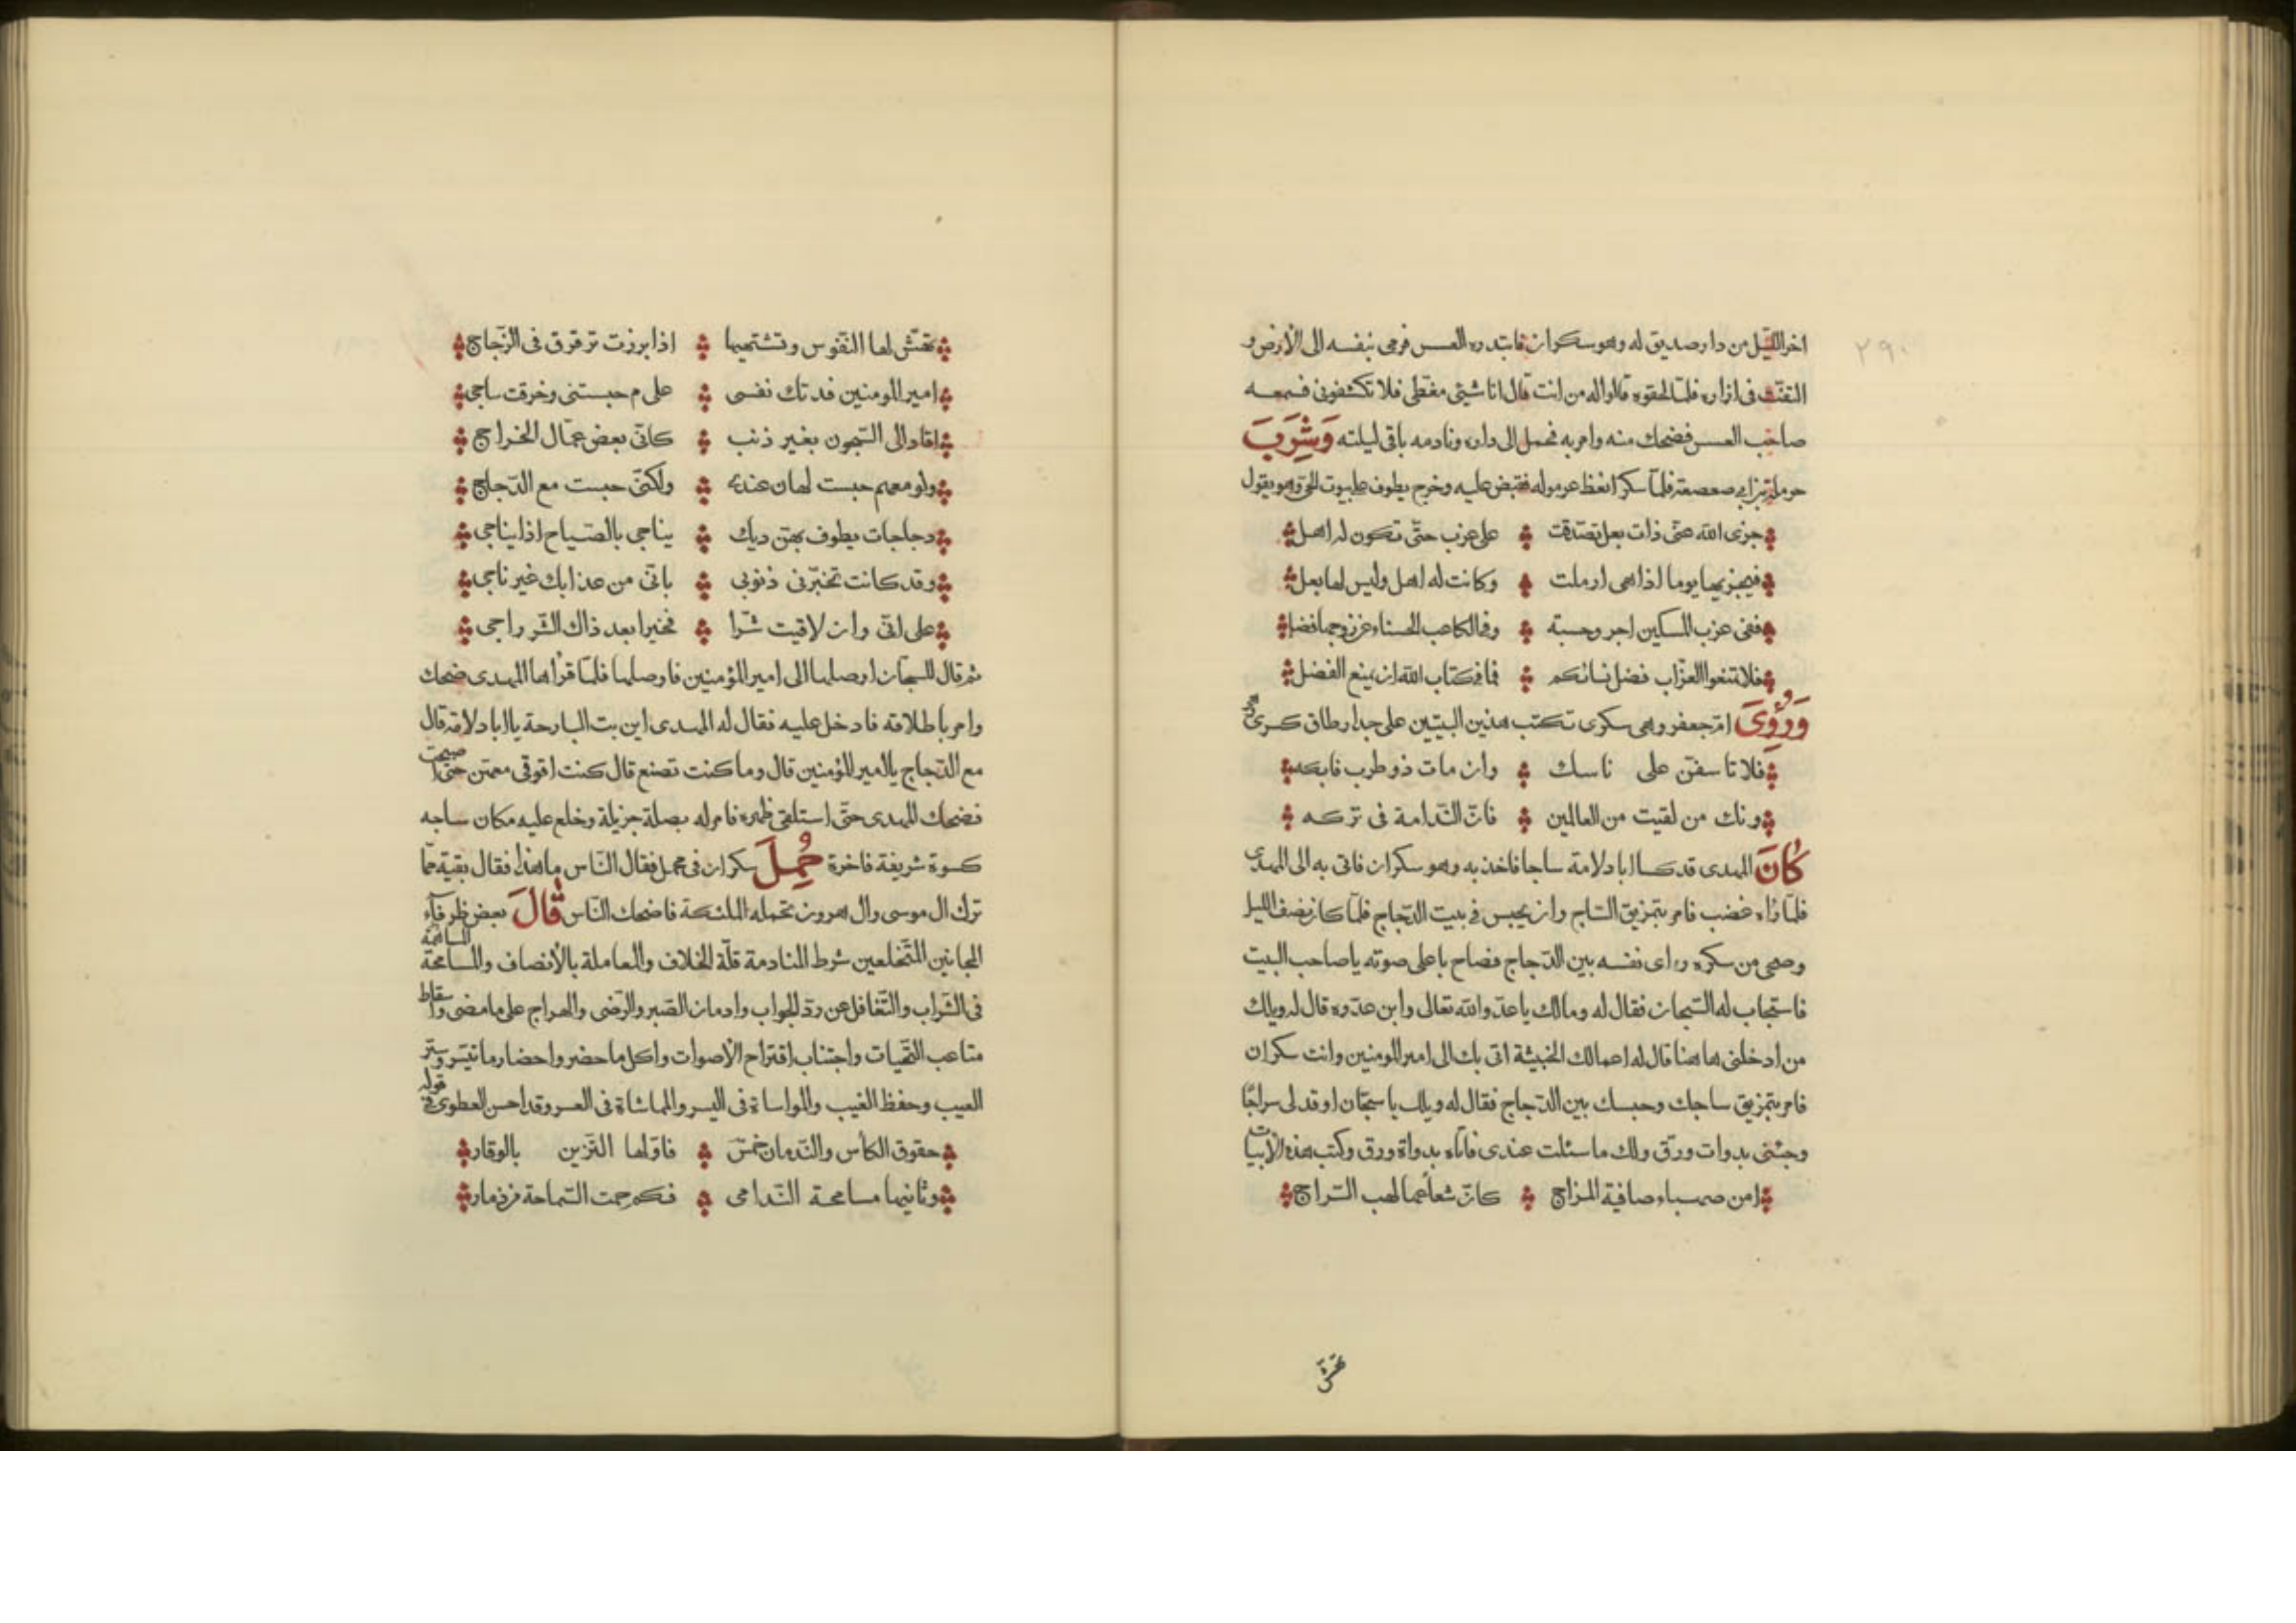 ٢٩٠
اخر الليل من دار صديق له وهو سكران فابتدره العسس فرمى بنفسه الى الأرض و
التفت فى ازاره فلما لحقوه قالوا له من انت قال انا شيئ مغطى فلا تكشفونى فسمعه
صاحب العسس فضحك منه وامر به فحمل الى داره ونادمه باقى ليلته وَشَرِبَ
حرملة بن ابى صعصعة فلمّا سكر انغظ عرموله فقبض عليه وخرج يطوف على بيوت الحى وهو يقول
جزى الله عنّى ذات بعل تصدّقت على عزب حتّى تكون له اهل
فيجزيها يوما اذا هى ارملت وكانت له اهل وليس لها بعل
ففى عزب المسكين اجر وحسبة وفى الكاعب الحسناء عن زوجها فضل
فلا تمنعوا العزّاب فضل نسائكم فما فى كتاب الله ان يمنع الفضل
وَرُؤِىَ امّ جعفر وهى سكرى تكتب هذين البيتين على جدار طاق كسرى
فلا تاسفنّ على ناسك وان مات ذو طرب فابكه
ونك من لقيت من العالمين فانّ النّدامة فى تركه
كَانَ المهدى قد كسا ابا دلامة ساجا فاخذ به وهو سكران فاتى به الى المهدى
فلمّا رٰاه غضب فامر بتمزيق السّاج وان يحبس فى بيت الدّجاج فلمّا كان نصف الليل
وصحى من سكره وراى نفسه بين الدّجاج فصاح باعلى صوته يا صاحب البيت
فاستجاب له السّجان فقال له ومالك يا عدّو الله تعالى وابن عدّوه قال له ويلك
من ادخلنى هاهنا قال له اعمالك الخبيثة اتى بك الى امير المومنين وانت سكران
فامر بتمزيق ساجك وحبسك بين الدّجاج فقال له ويلك يا سجّان اوقد لى سراجًا
وجئنى بدوات وورق ولك ما سئلت عندى فاتاه بدواة وورق وكتب هذه الأبيات
امن صهباء صافية المزاج كانّ شعاعها لهب السّراج
تهش
تهشّ لها النّفوس وتشتهيها اذا برزت ترقرق فى الزّجاج
امير المومنين فدتك نفسى على م حبستنى وخرقت ساجى
اقاد الى السّجون بغير ذنب كانّى بعض عمّال الخراج
ولو معهم حبست لهان عندى ولكنّى حبست مع الدّجاج
دجاجات يطوف بهنّ ديك يناجى بالصّياح اذا يناجى
وقد كانت تخبّرنى ذنوبى بانّى من عذابك غير ناجى
على انّى وان لاقيت شرّا فخيرا بعد ذاك الشّر راجى
ثم قال للسجّان اوصلها الى امير المؤمنين فاوصلها فلمّا قراها المهدى ضحك
وامر باطلاقه فادخل عليه فقال له المهدى اين بت البارحة يا ابا دلامة قال
مع الدّجاج يا امير المؤمنين قال وما كنت تصنع قال كنت اقوقى معهن حتّى اصبحت
فضحك المهدى حتّى استلقى ظهره فامر له بصلة جزيلة وخلع عليه مكان ساجه
كسوة شريفة فاخرة حُمِلَ سكران فى محمل فقال النّاس ما هذا فقال بقيّة ممّا
ترك ال موسى وال هرون تحمله الملئكة فاضحك النّاس قَالَ بعض ظرفآء
المجانين المتخلعين شرط المنادمة قلّة الخلاف والمعاملة بالأنصاف والمسامحة
فى الشّراب والتّغافل عن ردّ الجواب وادمان الصّبر والرّضى والمراج على ما مضى واسقاط
متاعب التّحيات واجتناب اقتراح الأصوات واكل ما حضر واحضار ما تيسّر وستر
العيب وحفظ الغيب والمواساة فى اليسر والمماشاة فى العسر وقد احسن العطوى فى قوله
حقوق الكأس والنّدمان خمسٌ فاوّلها التّزين بالوقار
وثانيها مسامحة النّدامى فكم حمت السّماحة من ذمار